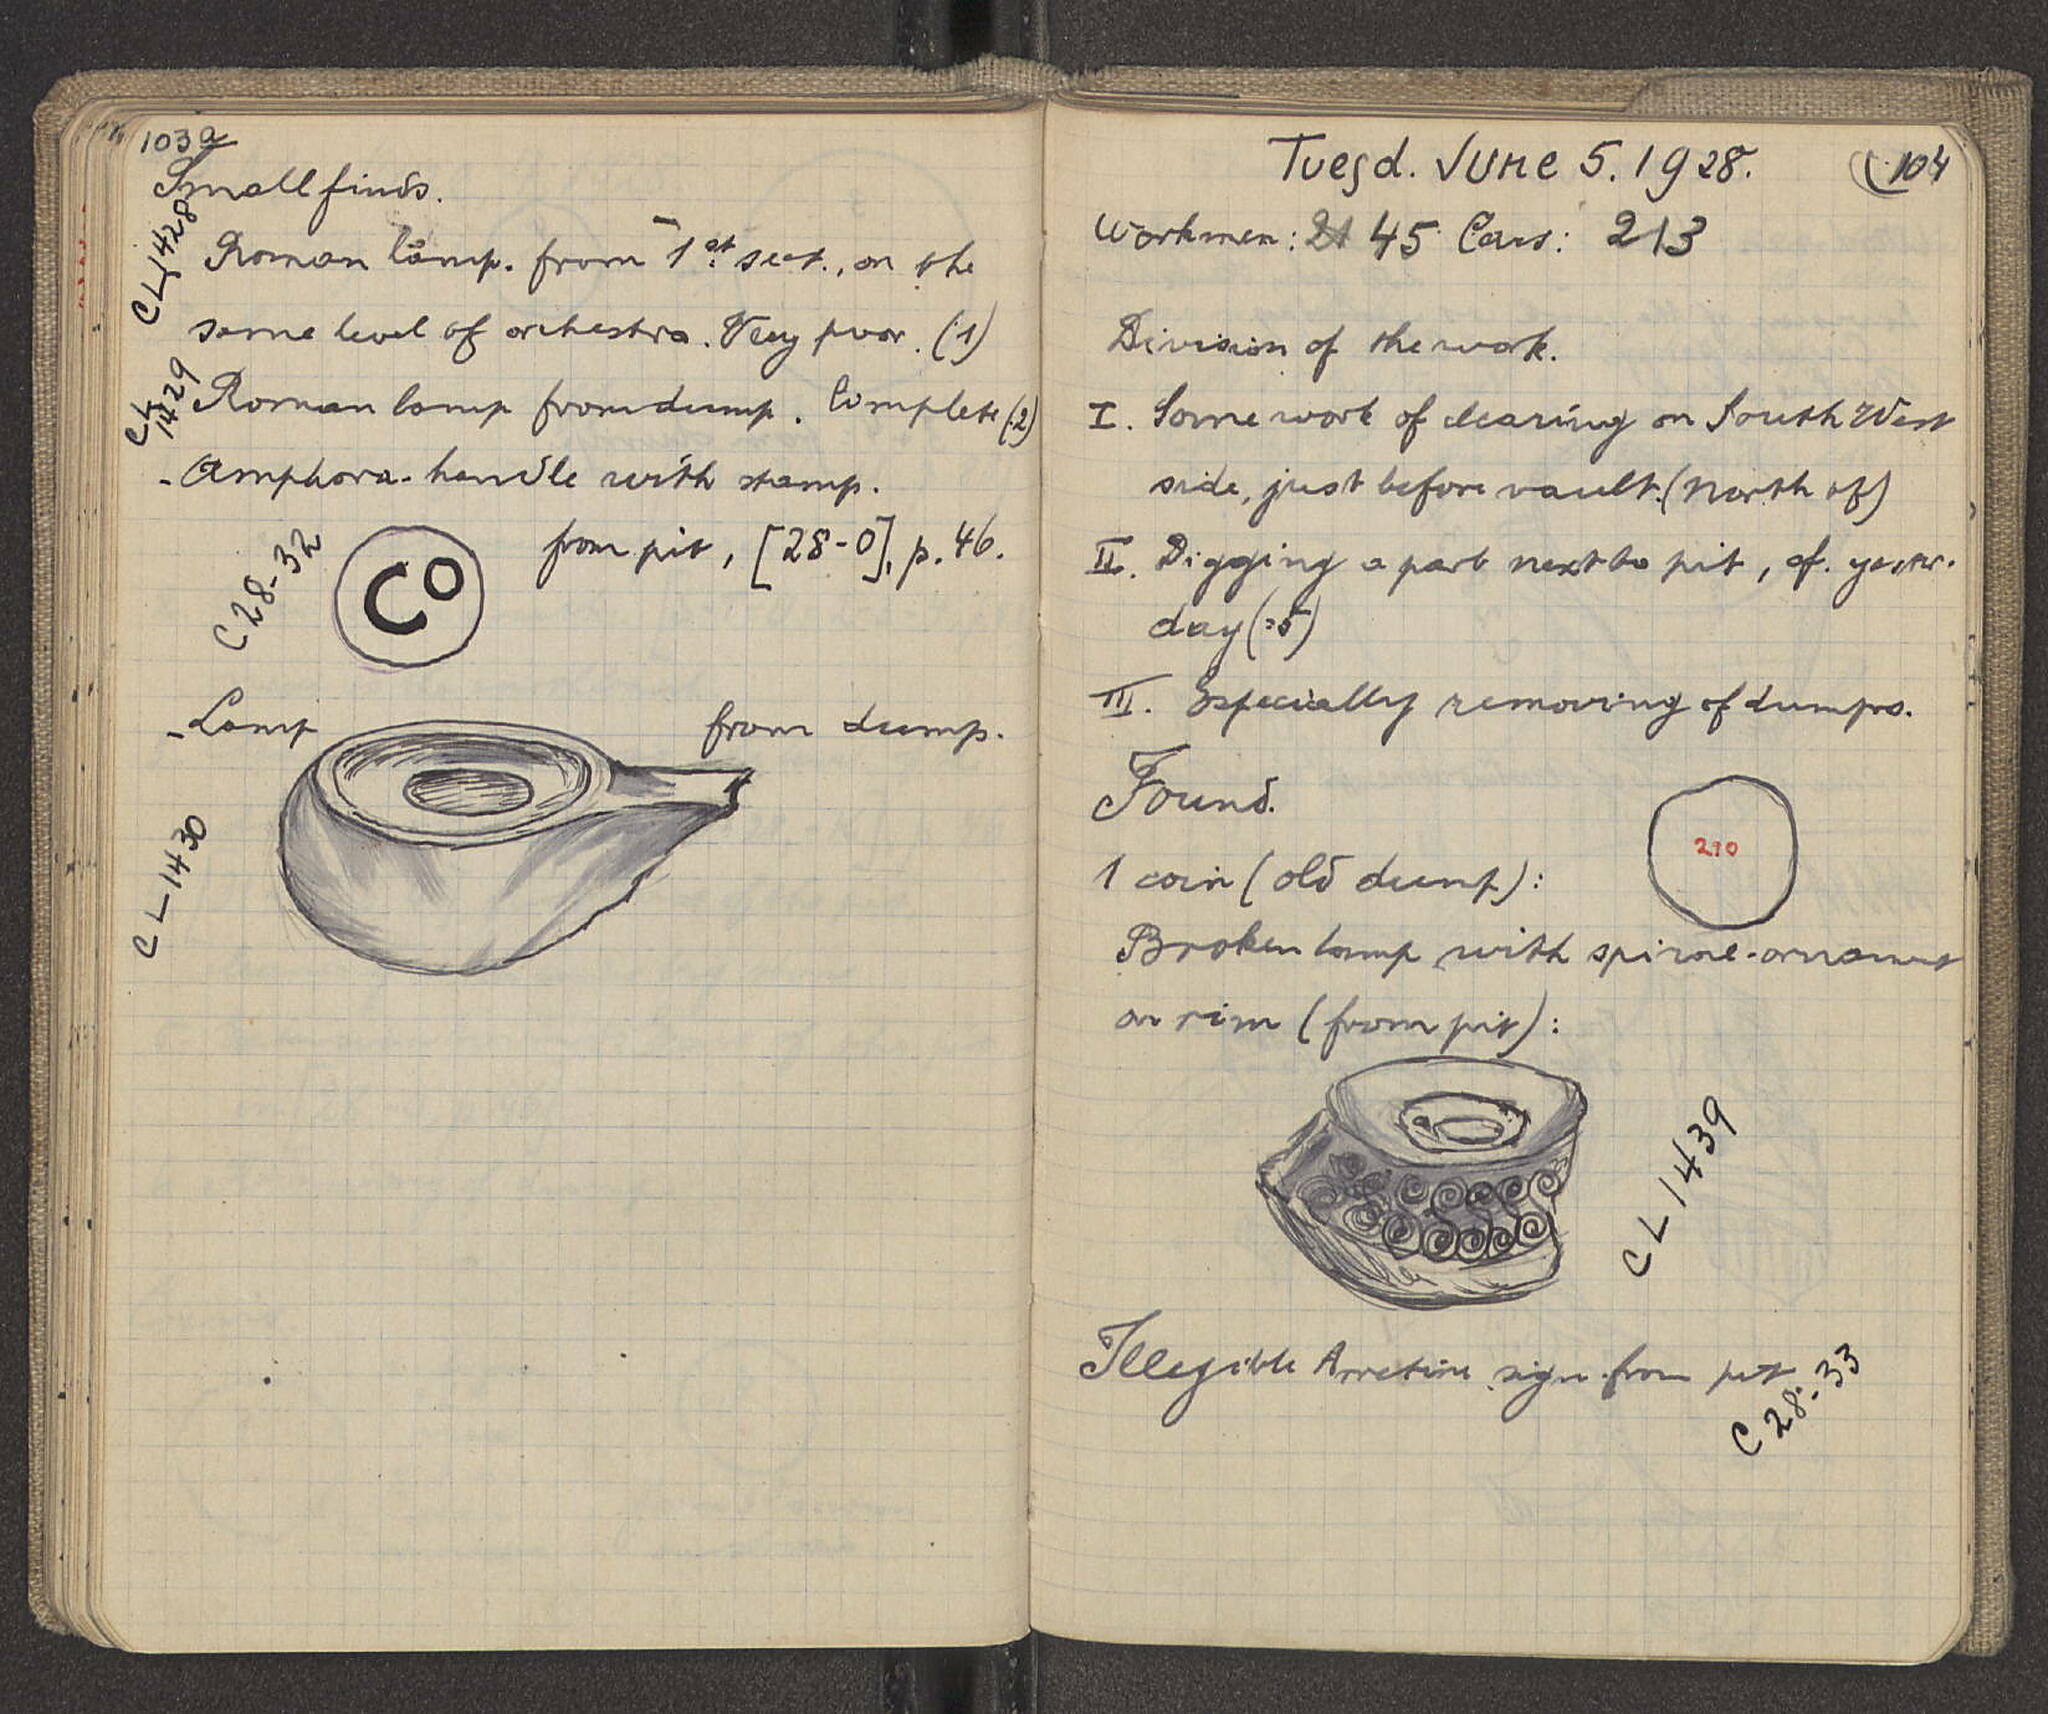 103a
Small finds.
CL 1428
Roman lamp. from 1st sect., on the
same level of orchestra. Very poor. (1)
CL 1429
Roman lamp from dump. Complete (2)
- Amphora-handle with stamp.
C 28-32
CO
from pit, [28-0], p. 46.
- Lamp
from dump.
CL-1430
Tuesd. June 5. 1928.
104
Workmen: 45 Cars: 213
Division of the work.
I. Some work of clearing on South West
side, just before vault. (North of)
II. Digging a part next to pit, of. yester-
day (:5)
III. Especially removing of dumps.
Found.
1 coin (old dump):
210
Broken lamp with spiral-ornament
on rim (from pit):
CL 1439
Illegible Arretine sign. from pit
C 28-33